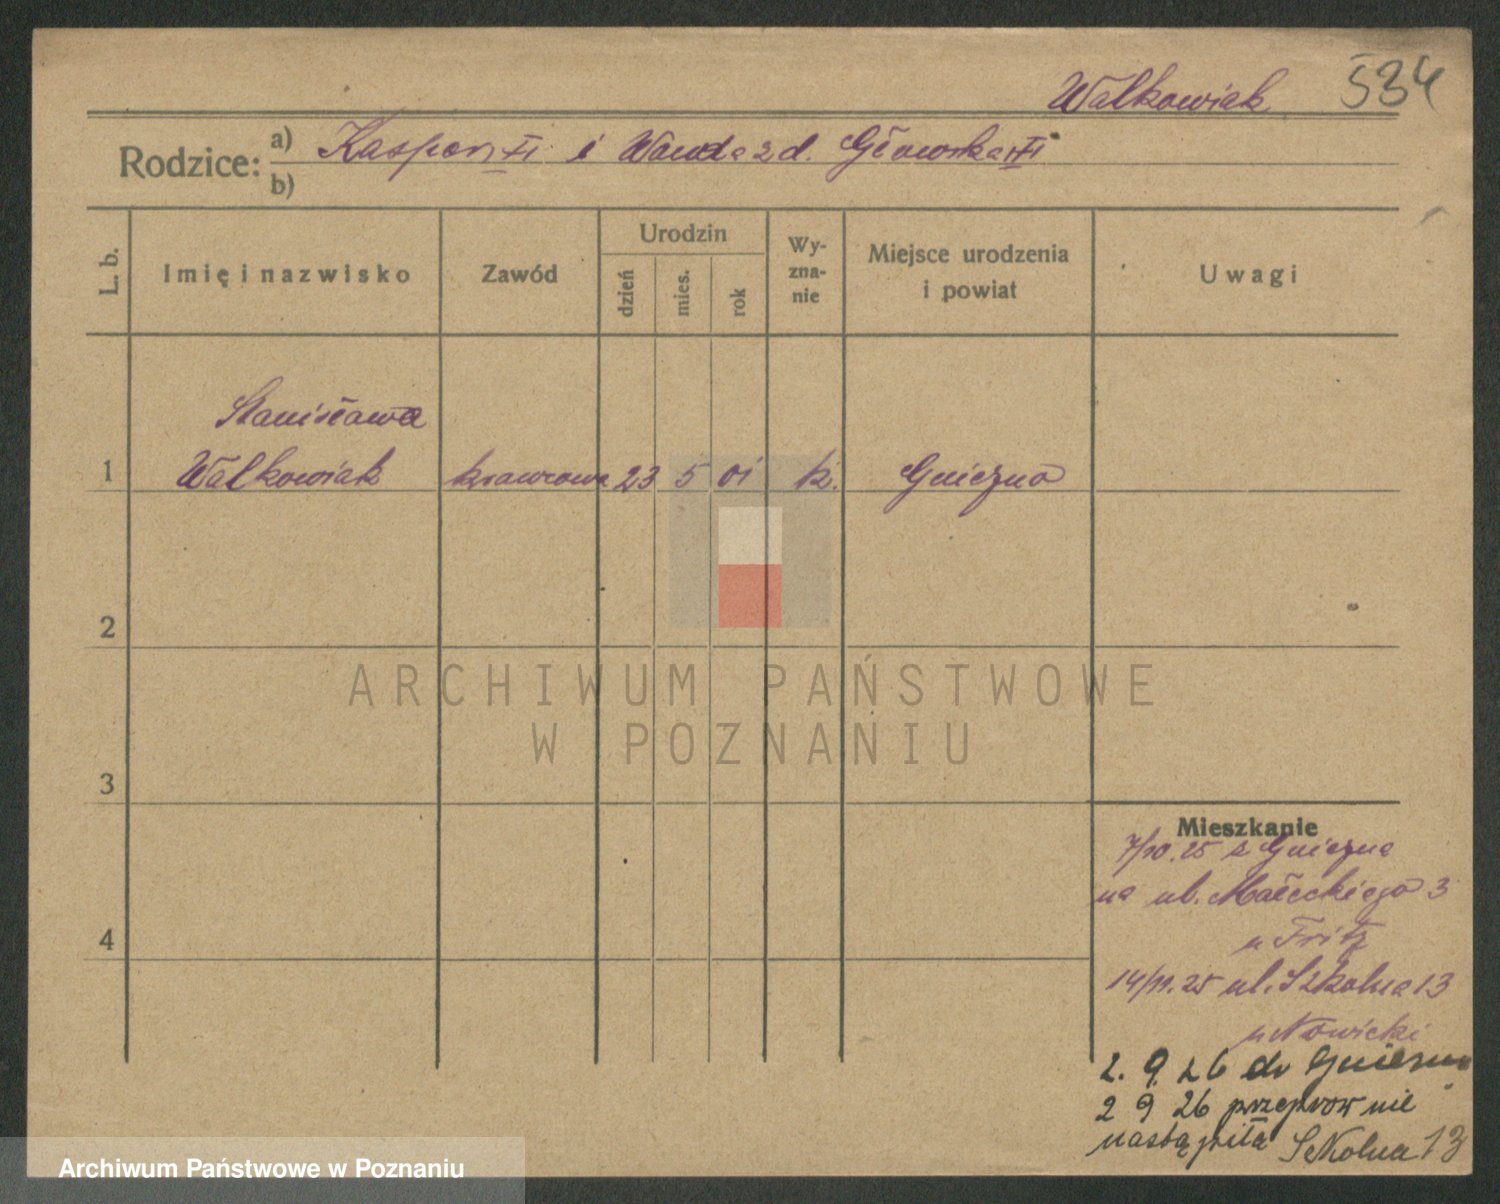 Walkowiak 534
Rodzice: a) Kasper i Wanda z d.
b)
L. b. Imię i nazwisko Zawód Urodzin dzień mies. rok Wyznanie Miejsce urodzenia i powiat Uwagi
Stanisława
1 Walkowiak krawcowa 23 5 01 k. Gniezno
2
3
4
Mieszkanie
7/10.25 z Gniezna
na ul. Małeckiego 3
u Fritz
14/11.25 ul. Szkolna 13
u Nowicki
2. 9. 26 do Gniezna
2 9 26 przeprow nie
nastąpiła Szkolna 13
ARCHIWUM PAŃSTWOWE
W POZNANIU
Archiwum Państwowe w Poznaniu